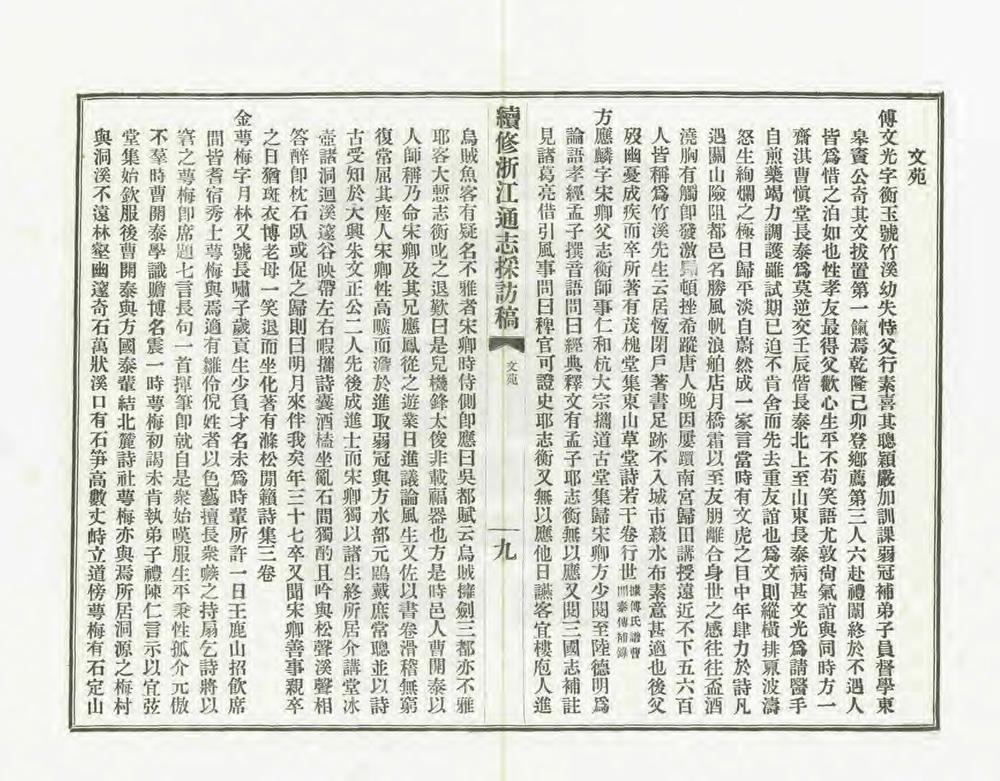 文苑
傅文光字衡玉號竹溪幼失恃父行素喜其聰穎嚴加訓課弱冠補弟子員督學東
皋竇公奇其文拔置第一餼焉乾隆己卯登鄉薦第三人六赴禮闈終於不遇人
皆爲惜之泊如也性孝友最得父歡心生平不苟笑語尤敦尙氣誼與同時方一
齋淇曹愼堂長泰爲莫逆交壬辰偕長泰北上至山東長泰病甚文光爲請醫手
自煎藥竭力調護雖試期已迫不肯舍而先去重友誼也爲文則縱橫排奡波濤
怒生絢爛之極日歸平淡自蔚然成一家言當時有文虎之目中年肆力於詩凡
遇關山險阻都邑名勝風帆浪舶店月橋霜以至友朋離合身世之感往往盃酒
澆胸有觸卽發激昻頓挫希蹤唐人晚因屢躓南宮歸田講授遠近不下五六百
人皆稱爲竹溪先生云居恆閉戶著書足跡不入城市菽水布素意甚適也後父
歿幽憂成疾而卒所著有茂槐堂集東山草堂詩若干卷行世據傅氏譜曹開泰傳補錄
方應麟字宋卿父志衡師事仁和杭大宗攜道古堂集歸宋卿方少閱至陸德明爲
論語孝經孟子撰音語問曰經典釋文有孟子耶志衡無以應又閱三國志補註
見諸葛亮借引風事問曰稗官可證史耶志衡又無以應他日讌客宜樓庖人進
續修浙江通志採訪稿
文苑
九
烏賊魚客有疑名不雅者宋卿時侍側卽應曰吳都賦云烏賊擁劍三都亦不雅
耶客大慙志衡叱之退歎曰是兒機鋒太俊非載福器也方是時邑人曹開泰以
人師稱乃命宋卿及其兄應鳳從之遊業日進議論風生又佐以書卷滑稽無窮
復常屈其座人宋卿性高曠而澹於進取弱冠與方水部元鵾戴庶常聰並以詩
古受知於大興朱文正公二人先後成進士而宋卿獨以諸生終所居介講堂冰
壺諸洞迴溪邃谷映帶左右暇攜詩囊酒榼坐亂石間獨酌且吟與松聲溪聲相
答醉卽枕石臥或促之歸則曰明月來伴我矣年三十七卒又聞宋卿善事親卒
之日猶斑衣博老母一笑退而坐化著有滌松閒籟詩集三卷
金萼梅字月林又號長嘯子歲貢生少負才名未爲時輩所許一日王鹿山招飮席
間皆耆宿秀士萼梅與焉適有雛伶倪姓者以色藝擅長衆嗾之持扇乞詩將以
窘之萼梅卽席題七言長句一首揮筆卽就自是衆始嘆服生平秉性孤介兀傲
不羣時曹開泰學識贍博名震一時萼梅初謁未肯執弟子禮陳仁言示以宜弦
堂集始欽服後曹開泰與方國泰輩結北麓詩社萼梅亦與焉所居洞源之梅村
與洞溪不遠林壑幽邃奇石萬狀溪口有石筍高數丈峙立道傍萼梅有石定山